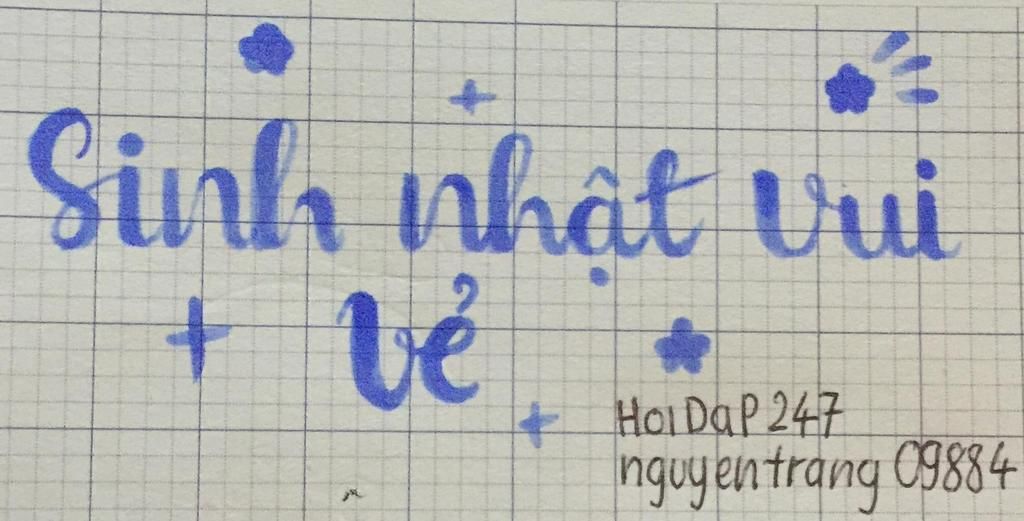 Sinh nhật vui
vẻ
HoiDaP 247
nguyentrang 09884